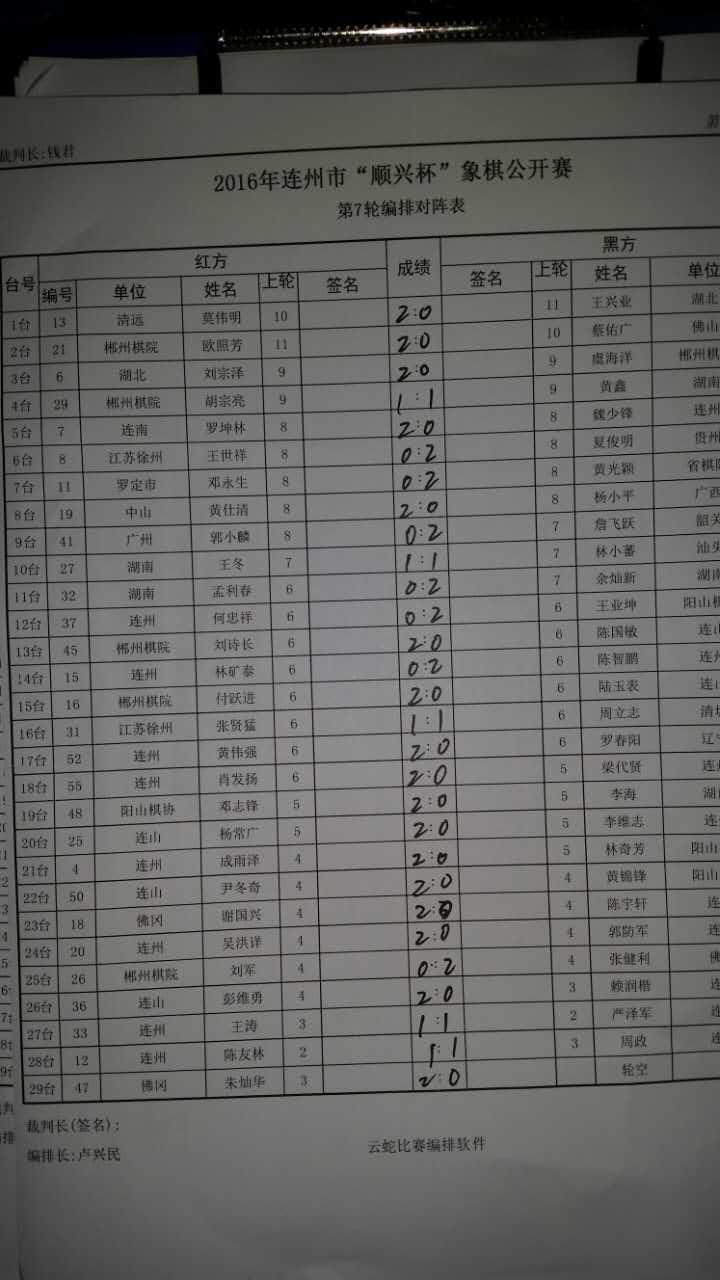 裁判长:钱君
2016年连州市“顺兴杯”象棋公开赛
第7轮编排对阵表
台号 红方 成绩 黑方
编号 单位 姓名 上轮 签名 签名 上轮 姓名 单位
1台 13 清远 莫伟明 10 2:0 11 王兴业 湖北
2台 21 郴州棋院 欧照芳 11 2:0 10 蔡佑广 佛山
3台 6 湖北 刘宗泽 9 2:0 9 虞海洋 郴州棋
4台 29 郴州棋院 胡宗亮 9 1:1 9 黄鑫 湖南
5台 7 连南 罗坤林 8 2:0 8 魏少锋 连州
6台 8 江苏徐州 王世祥 8 0:2 8 夏俊明 贵州
7台 11 罗定市 邓永生 8 0:2 8 黄光颖 省棋队
8台 19 中山 黄仕清 8 2:0 8 杨小平 广西
9台 41 广州 郭小麟 8 0:2 7 詹飞跃 韶关
10台 27 湖南 王冬 7 1:1 7 林小蕃 汕头
11台 32 湖南 孟利春 6 0:2 7 余灿新 湖南
12台 37 连州 何忠祥 6 0:2 6 王业坤 阳山棋
13台 45 郴州棋院 刘诗长 6 2:0 6 陈国敏 连山
14台 15 连州 林矿泰 6 0:2 6 陈智鹏 连州
15台 16 郴州棋院 付跃进 6 2:0 6 陆玉表 连山
16台 31 江苏徐州 张贤猛 6 1:1 6 周立志 清
17台 52 连州 黄伟强 6 2:0 6 罗春阳 辽宁
18台 55 连州 肖发扬 6 2:0 5 梁代贤 连
19台 48 阳山棋协 邓志锋 5 2:0 5 李海 湖
20台 25 连山 杨常广 5 2:0 5 李维志 连
21台 4 连州 成雨泽 4 2:0 5 林奇芳 阳山
22台 50 连山 尹冬奇 4 2:0 4 黄锦锋 阳山
23台 18 佛冈 谢国兴 4 2:0 4 陈宇轩 连
24台 20 连州 吴洪详 4 2:0 4 郭防军 连
25台 26 郴州棋院 刘军 4 0:2 4 张健利 佛
26台 36 连山 彭维勇 4 2:0 3 赖润楷 连
27台 33 连州 王涛 3 1:1 2 严泽军 连
28台 12 连州 陈友林 2 1:1 3 周政 连
29台 47 佛冈 朱灿华 3 2:0 轮空
裁判长(签名):
编排长:卢兴民 云蛇比赛编排软件